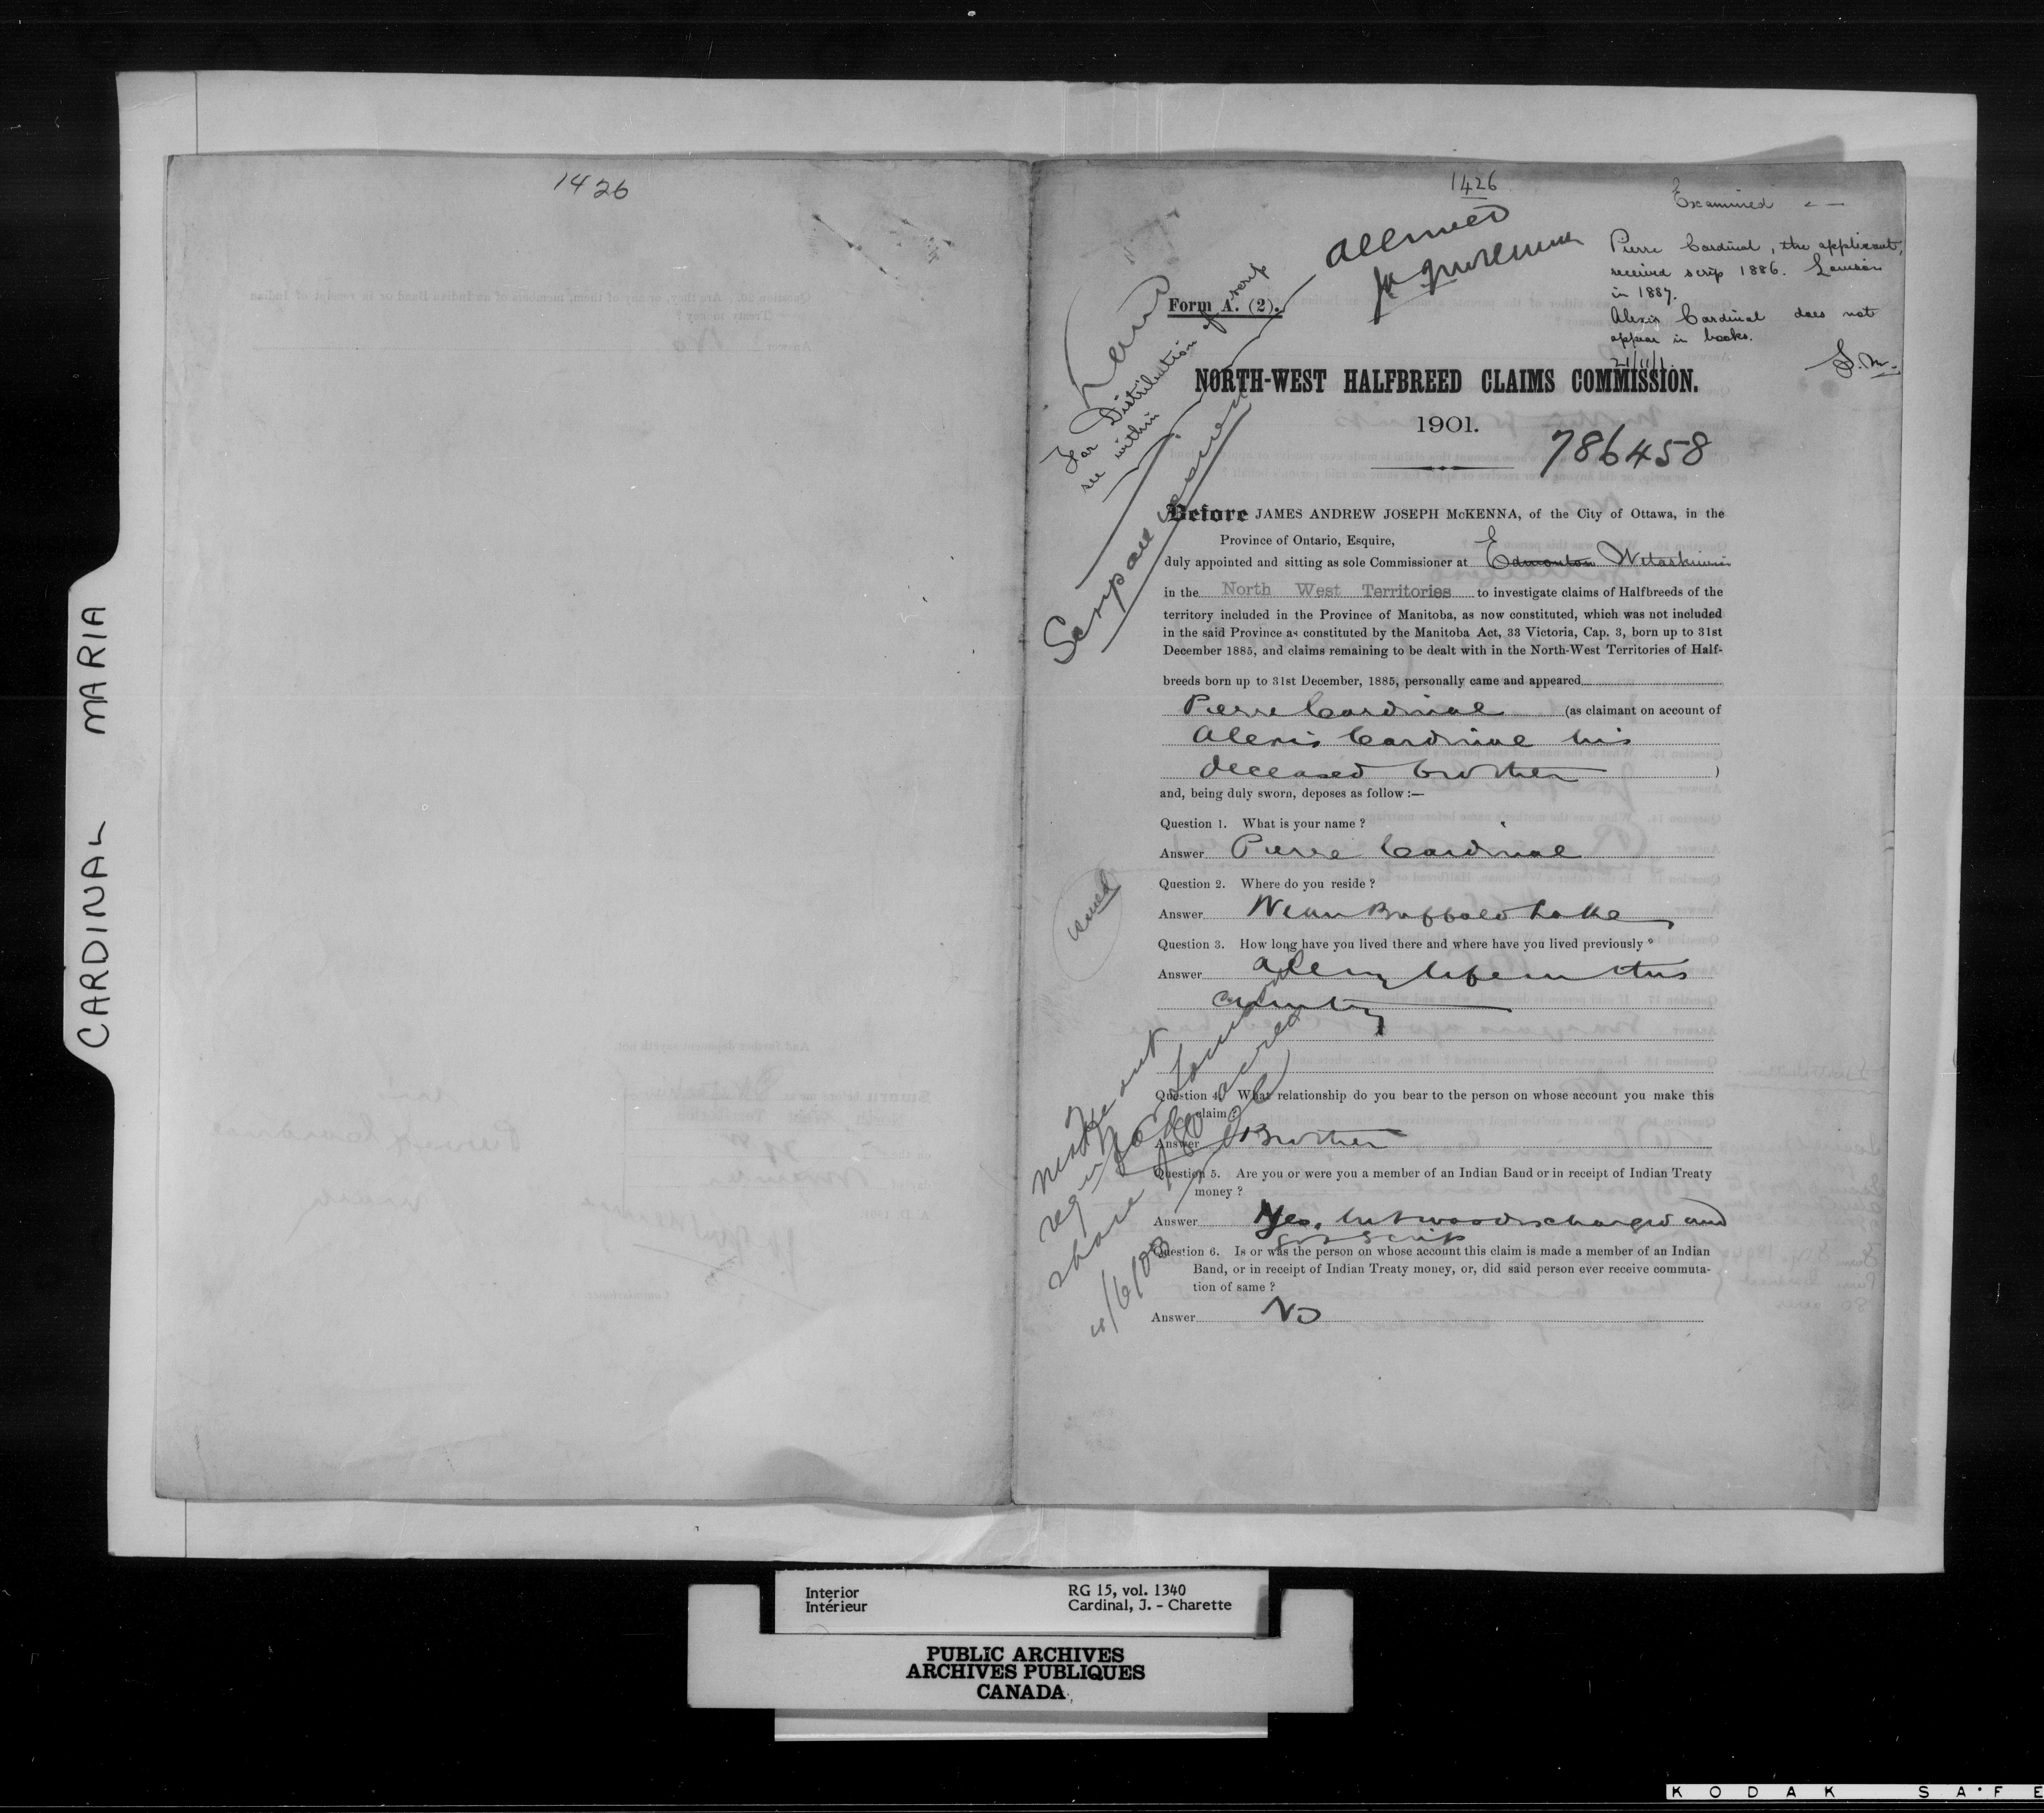 CARDINAL MARIA
1426
1426
Examined
Pierre Cardinal, the applicant,
received scrip 1886. Louison
in 1887.
Alexis Cardinal does not
appear in books.
21/11/1.
S.M.
allowed
Land
Form A. (2).
For Distribution of scrip
see within
Scrip all issued
NORTH-WEST HALFBREED CLAIMS COMMISSION.
1901.
786458
Before JAMES ANDREW JOSEPH McKENNA, of the City of Ottawa, in the
Province of Ontario, Esquire,
duly appointed and sitting as sole Commissioner at Edmonton Wetaskiwin
in the North West Territories to investigate claims of Halfbreeds of the
territory included in the Province of Manitoba, as now constituted, which was not included
in the said Province as constituted by the Manitoba Act, 33 Victoria, Cap. 3, born up to 31st
December 1885, and claims remaining to be dealt with in the North-West Territories of Half-
breeds born up to 31st December, 1885, personally came and appeared
Pierre Cardinal (as claimant on account of
Alexis Cardinal his
deceased brother )
and, being duly sworn, deposes as follow :—
Question 1. What is your name ?
Answer Pierre Cardinal
Question 2. Where do you reside ?
Answer Near Buffalo Lake
issued
Question 3. How long have you lived there and where have you lived previously ?
Answer All my life in this
country
Question 4. What relationship do you bear to the person on whose account you make this
claim ?
Answer Brother
Question 5. Are you or were you a member of an Indian Band or in receipt of Indian Treaty
money ?
Answer Yes, but was discharged and
got scrip
Question 6. Is or was the person on whose account this claim is made a member of an Indian
Band, or in receipt of Indian Treaty money, or, did said person ever receive commuta-
tion of same ?
Answer No
make out
share 80 acres
Interior RG 15, vol. 1340
Intérieur Cardinal, J. - Charette
PUBLIC ARCHIVES
ARCHIVES PUBLIQUES
CANADA
KODAK SAFE